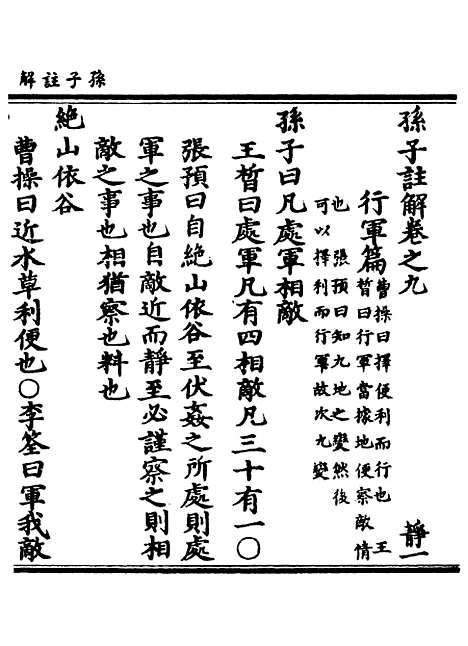 孫子註解
孫子註解卷之九
靜一
行軍篇
曹操曰擇便利而行也　王
晳曰行軍當據地便察敵情
也　張預曰知九地之變然後
可以擇利而行軍故次九變
孫子曰凡處軍相敵
王晳曰處軍凡有四相敵凡三十有一〇
張預曰自絶山依谷至伏姦之所處則處
軍之事也自敵近而靜至必謹察之則相
敵之事也相猶察也料也
絶山依谷
曹操曰近水草利便也〇李筌曰軍我敵